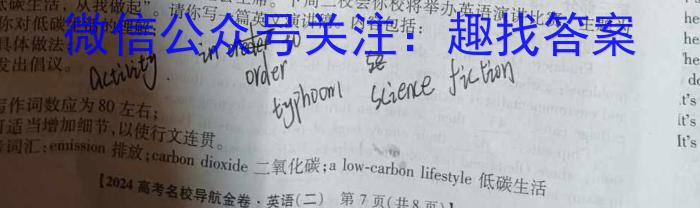 低碳生活，从我做起"。请你写一篇英文演讲
下周二校会你校将举办英语演讲比赛
内容包括：
你对低碳
具体做法
发出倡议。
微信公众号关注：趣找答案
activity.
order
typhoom
science fiction
写作词数应为80左右；
可适当增加细节，以使行文连贯。
词汇：emission 排放；carbon dioxide 二氧化碳；a low-carbon lifestyle 低碳生活
【2024 高考名校导航金卷·英语(二) 第7页(共8页)】
he
her
He
do
it's
it's
It's